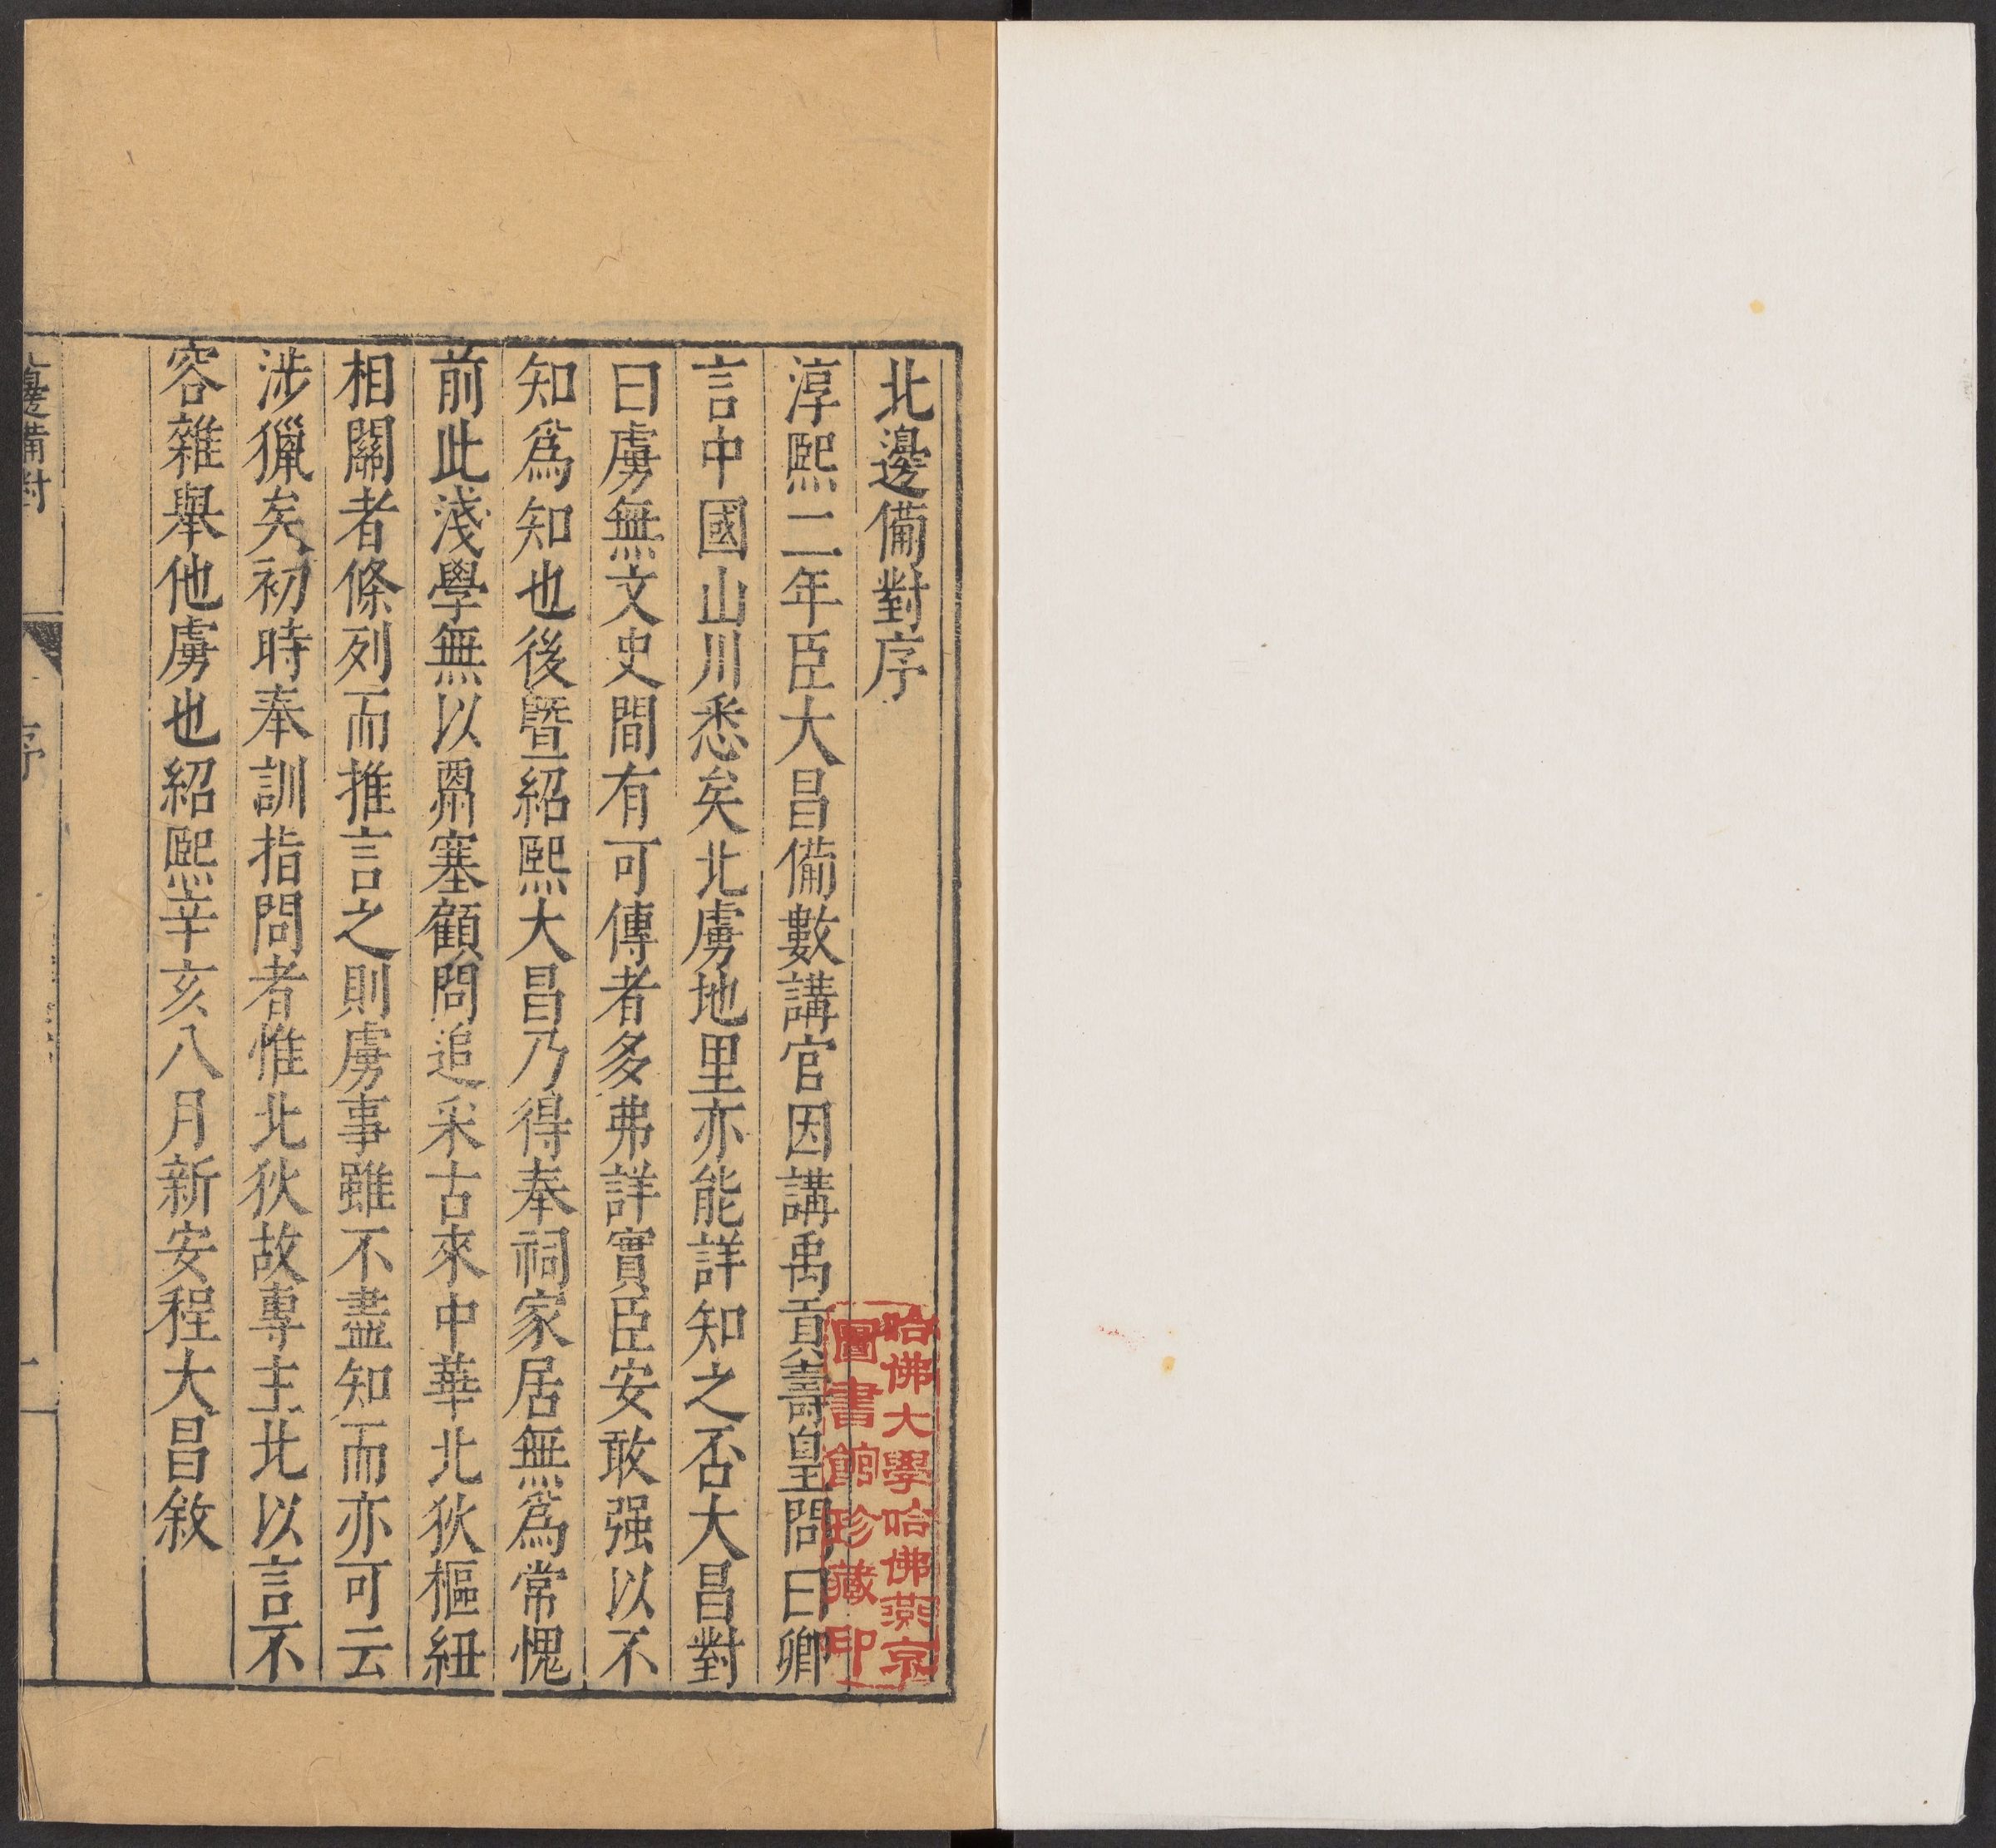 北邊備對序
淳熙二年臣大昌備數講官因講禹貢壽皇問曰卿
言中國山川悉矣北虜地里亦能詳知之否大昌對
曰虜無文史間有可傳者多弗詳實臣安敢强以不
知爲知也後曁紹熙大昌乃得奉祠家居無爲常愧
前此淺學無以𠷎塞顧問追采古來中華北狄樞紐
相關者條列而推言之則虜事雖不盡知而亦可云
涉獵矣初時奉訓指問者惟北狄故專主北以言不
容雜舉他虜也紹熙辛亥八月新安程大昌敘
邊備對
序
哈佛大學哈佛燕京
圖書館珍藏印